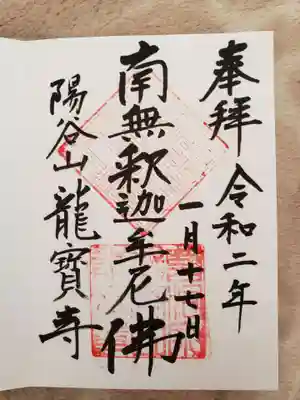 奉拝 令和二年
一月十七日
南無釈迦牟尼佛
陽谷山龍寳寺